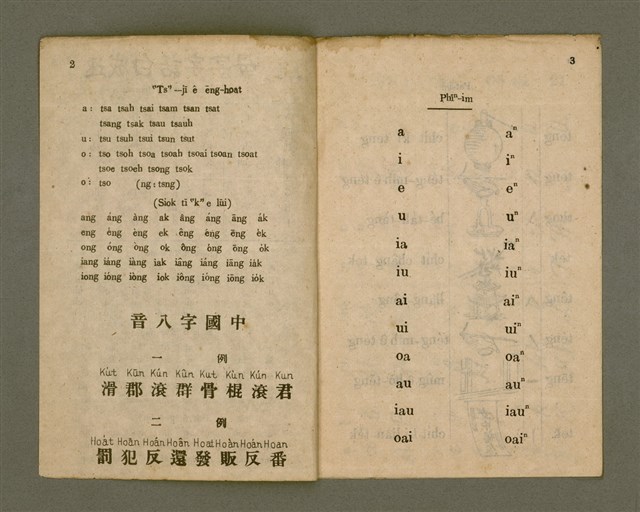 2
"Ts"—jī ê ēng-hoat
a: tsa tsah tsai tsam tsan tsat
tsang tsak tsau tsauh
u: tsu tsuh tsui tsun tsut
o: tso tsoh tsoa tsoah tsoai tsoan tsoat
tsoe tsoeh tsong tsok
o͘: tso (ng: tsng)
(Siok tī "k" e lūi)
ang áng àng ak âng áng āng a̍k
eng éng èng ek êng éng ēng e̍k
ong óng òng ok ông óng ōng o̍k
iang iáng iàng iak iâng iáng iāng ia̍k
iong ióng iòng iok iông ióng iōng io̍k
音八字國中
一 例
Ku̍t Kūn Kún Kûn Kut Kùn Kún Kun
滑郡滾群骨棍滾君
二 例
Hoa̍t Hoān Hoán Hoân Hoat Hoàn Hoán Hoan
罰犯反還發販反番
3
Phīⁿ-im
a aⁿ
i iⁿ
e eⁿ
u uⁿ
ia iaⁿ
iu iuⁿ
ai aiⁿ
ui uiⁿ
oa oaⁿ
au auⁿ
iau iauⁿ
oai oaiⁿ